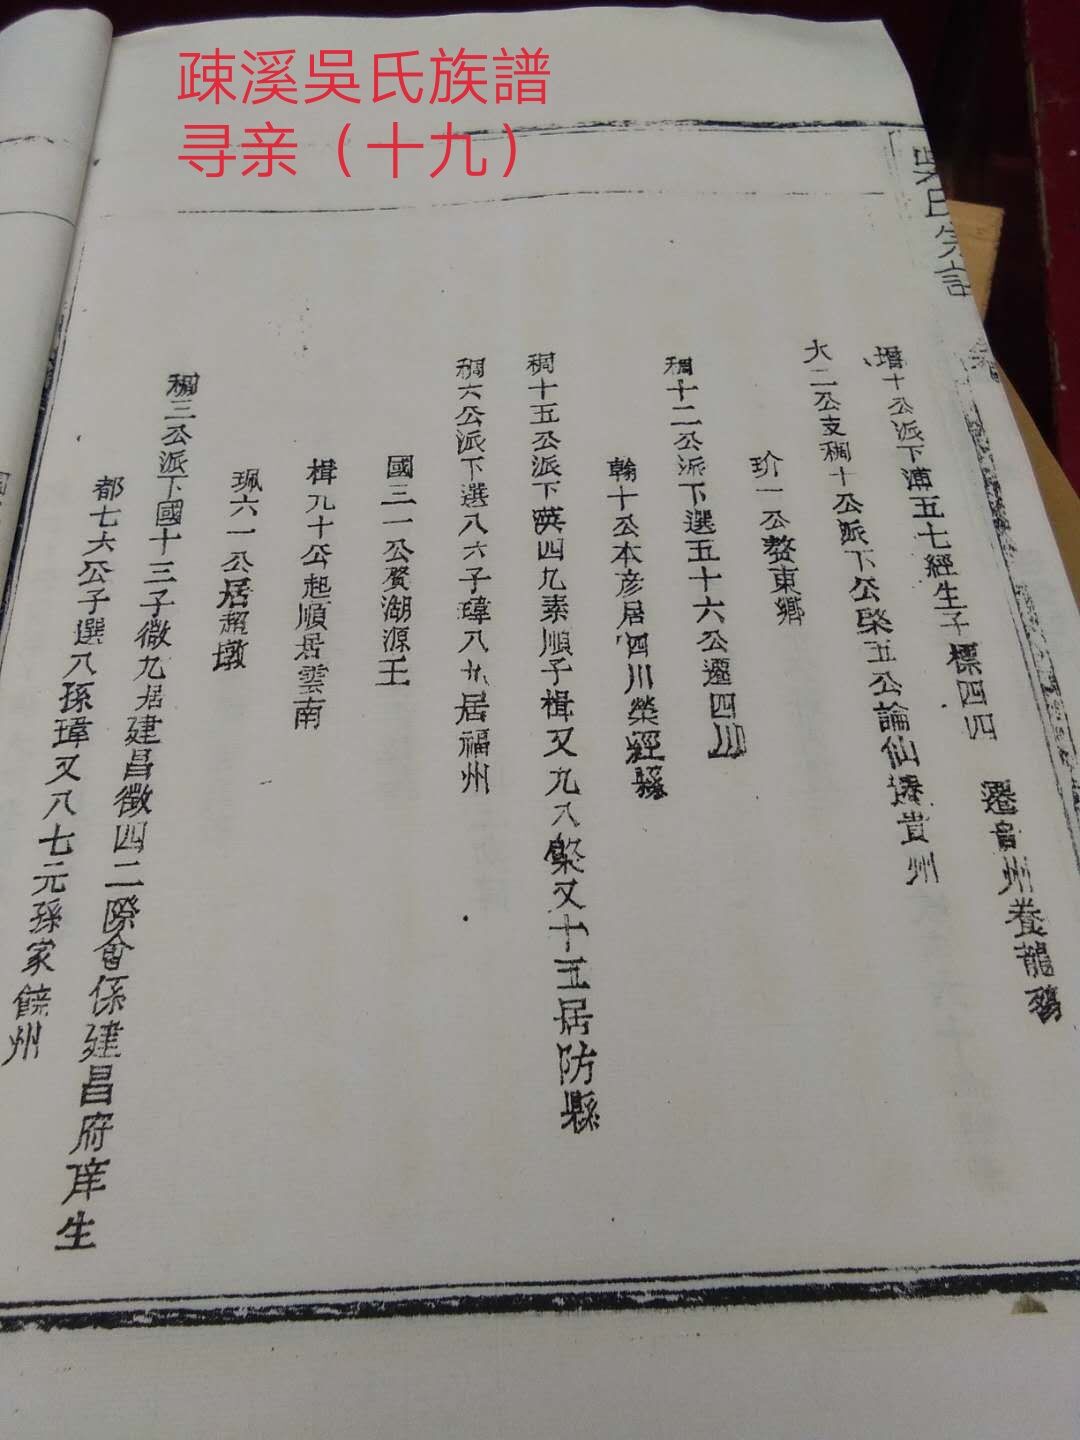 疎溪吳氏族譜
寻亲（十九）
吳氏宗譜
增十公派下溥五七經生子標四四 遷貴州養龍
大二公支稠十公派下公棨五公論仙遷貴州
玠一公婺東鄉
稠十二公派下選五十六公遷四川
翰十公本彥居四川榮經縣
稠十五公派下漢四九素順子楫又九八棨又十五居防縣
稠六公派下選八六子瑋八九居福州
國三一公贅湖源王
楫九十公起順居雲南
珮六一公居趙墩
稠三公派下國十三子徵九居建昌徵四二際會係建昌府庠生
都七六公子選八孫瑋又八七元孫家饒州